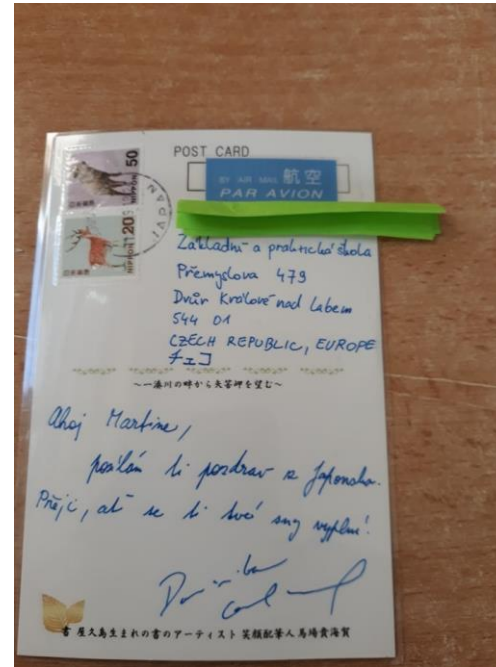 日本郵便
NIPPON 50
日本郵便
NIPPON 120
POST CARD
BY AIR MAIL 航空
PAR AVION
Základní a praktická škola
Přemyslova 479
Dvůr Králové nad Labem
544 01
CZECH REPUBLIC, EUROPE
チェコ
〜一湊川の畔から矢筈岬を望む〜
Ahoj Martine,
posílám ti pozdrav z Japonska.
Přeji, ať se ti tvé sny vyplní!
書 屋久島生まれの書のアーティスト 笑顔配筆人 馬場貴海賀